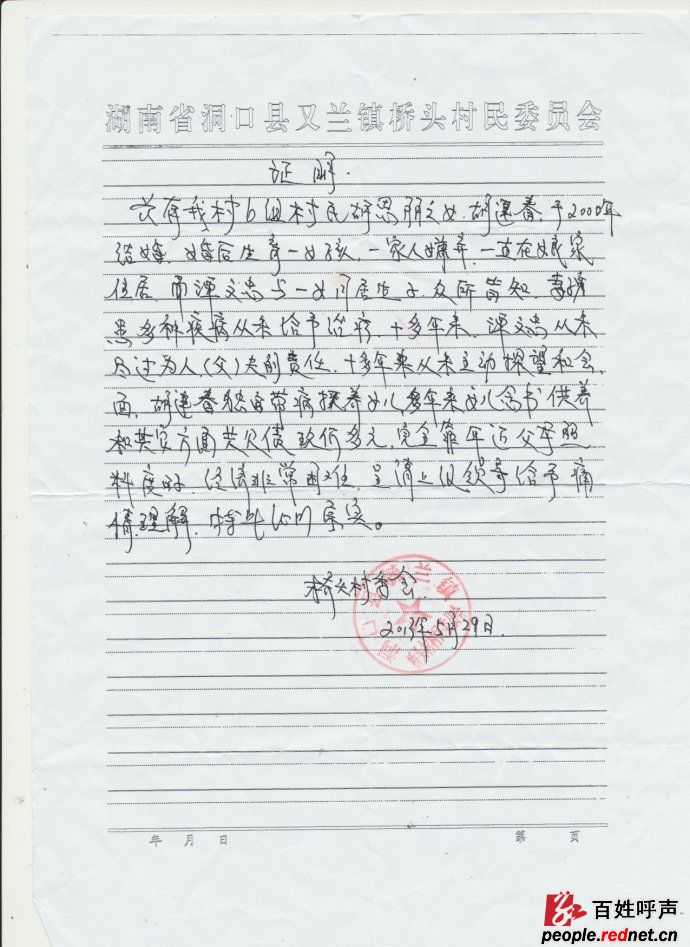 湖南省洞口县又兰镇桥头村民委员会
证明.
兹有我村6组村民胡思朋之女.胡莲香.于2000年
结婚.婚后生育一女孩.一家人嫌弃.一直在娘家
住居.而谭文忠与一女同居生子.众所皆知.妻
患多种疾病从未给予治疗.十多年来.谭文忠从未
尽过为人(父)夫的责任.十多年来从未主动探望和会
面.胡莲香独自带病抚养女儿.多年来女儿念书供养
和其它方面共欠债玖仟多元.完全靠年迈父母照
料度日.经济非常困难.呈请上级领导给予
情理解.特此证明 属实。
桥头村委会
2013年5月29日.
年 月 日
第 页
百姓呼声
people.rednet.cn